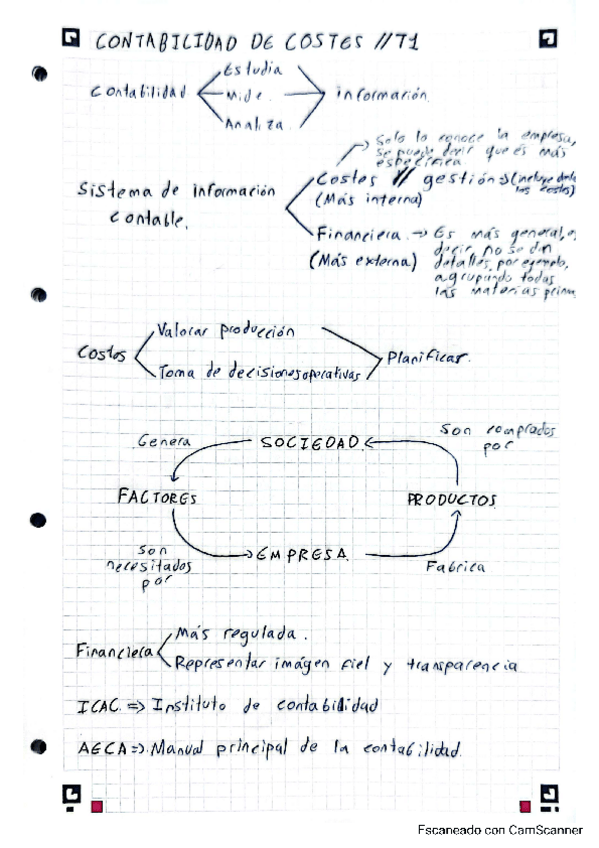 CONTABILIDAD DE COSTES // T1
Estudia
Contabilidad Mide información
Analiza
Solo la conoce la empresa,
se puede decir que es más
específica
Costes // gestión => (incluye
(Más interna) los costes)
Sistema de información
contable.
Financiera. -> Es más general, es
decir, no se dan
(Más externa) detalles, por ejemplo,
agrupando todas
las materias prima
Valorar producción
Costos Planificar.
Toma de decisiones operativas
Genera SOCIEDAD Son comprados
por
FACTORES PRODUCTOS
Son EMPRESA Fabrica
necesitados
por
Más regulada.
Financiera
Representar imágen fiel y transparencia
ICAC. => Instituto de contabilidad
AECA => Manual principal de la contabilidad.
Escaneado con CamScanner